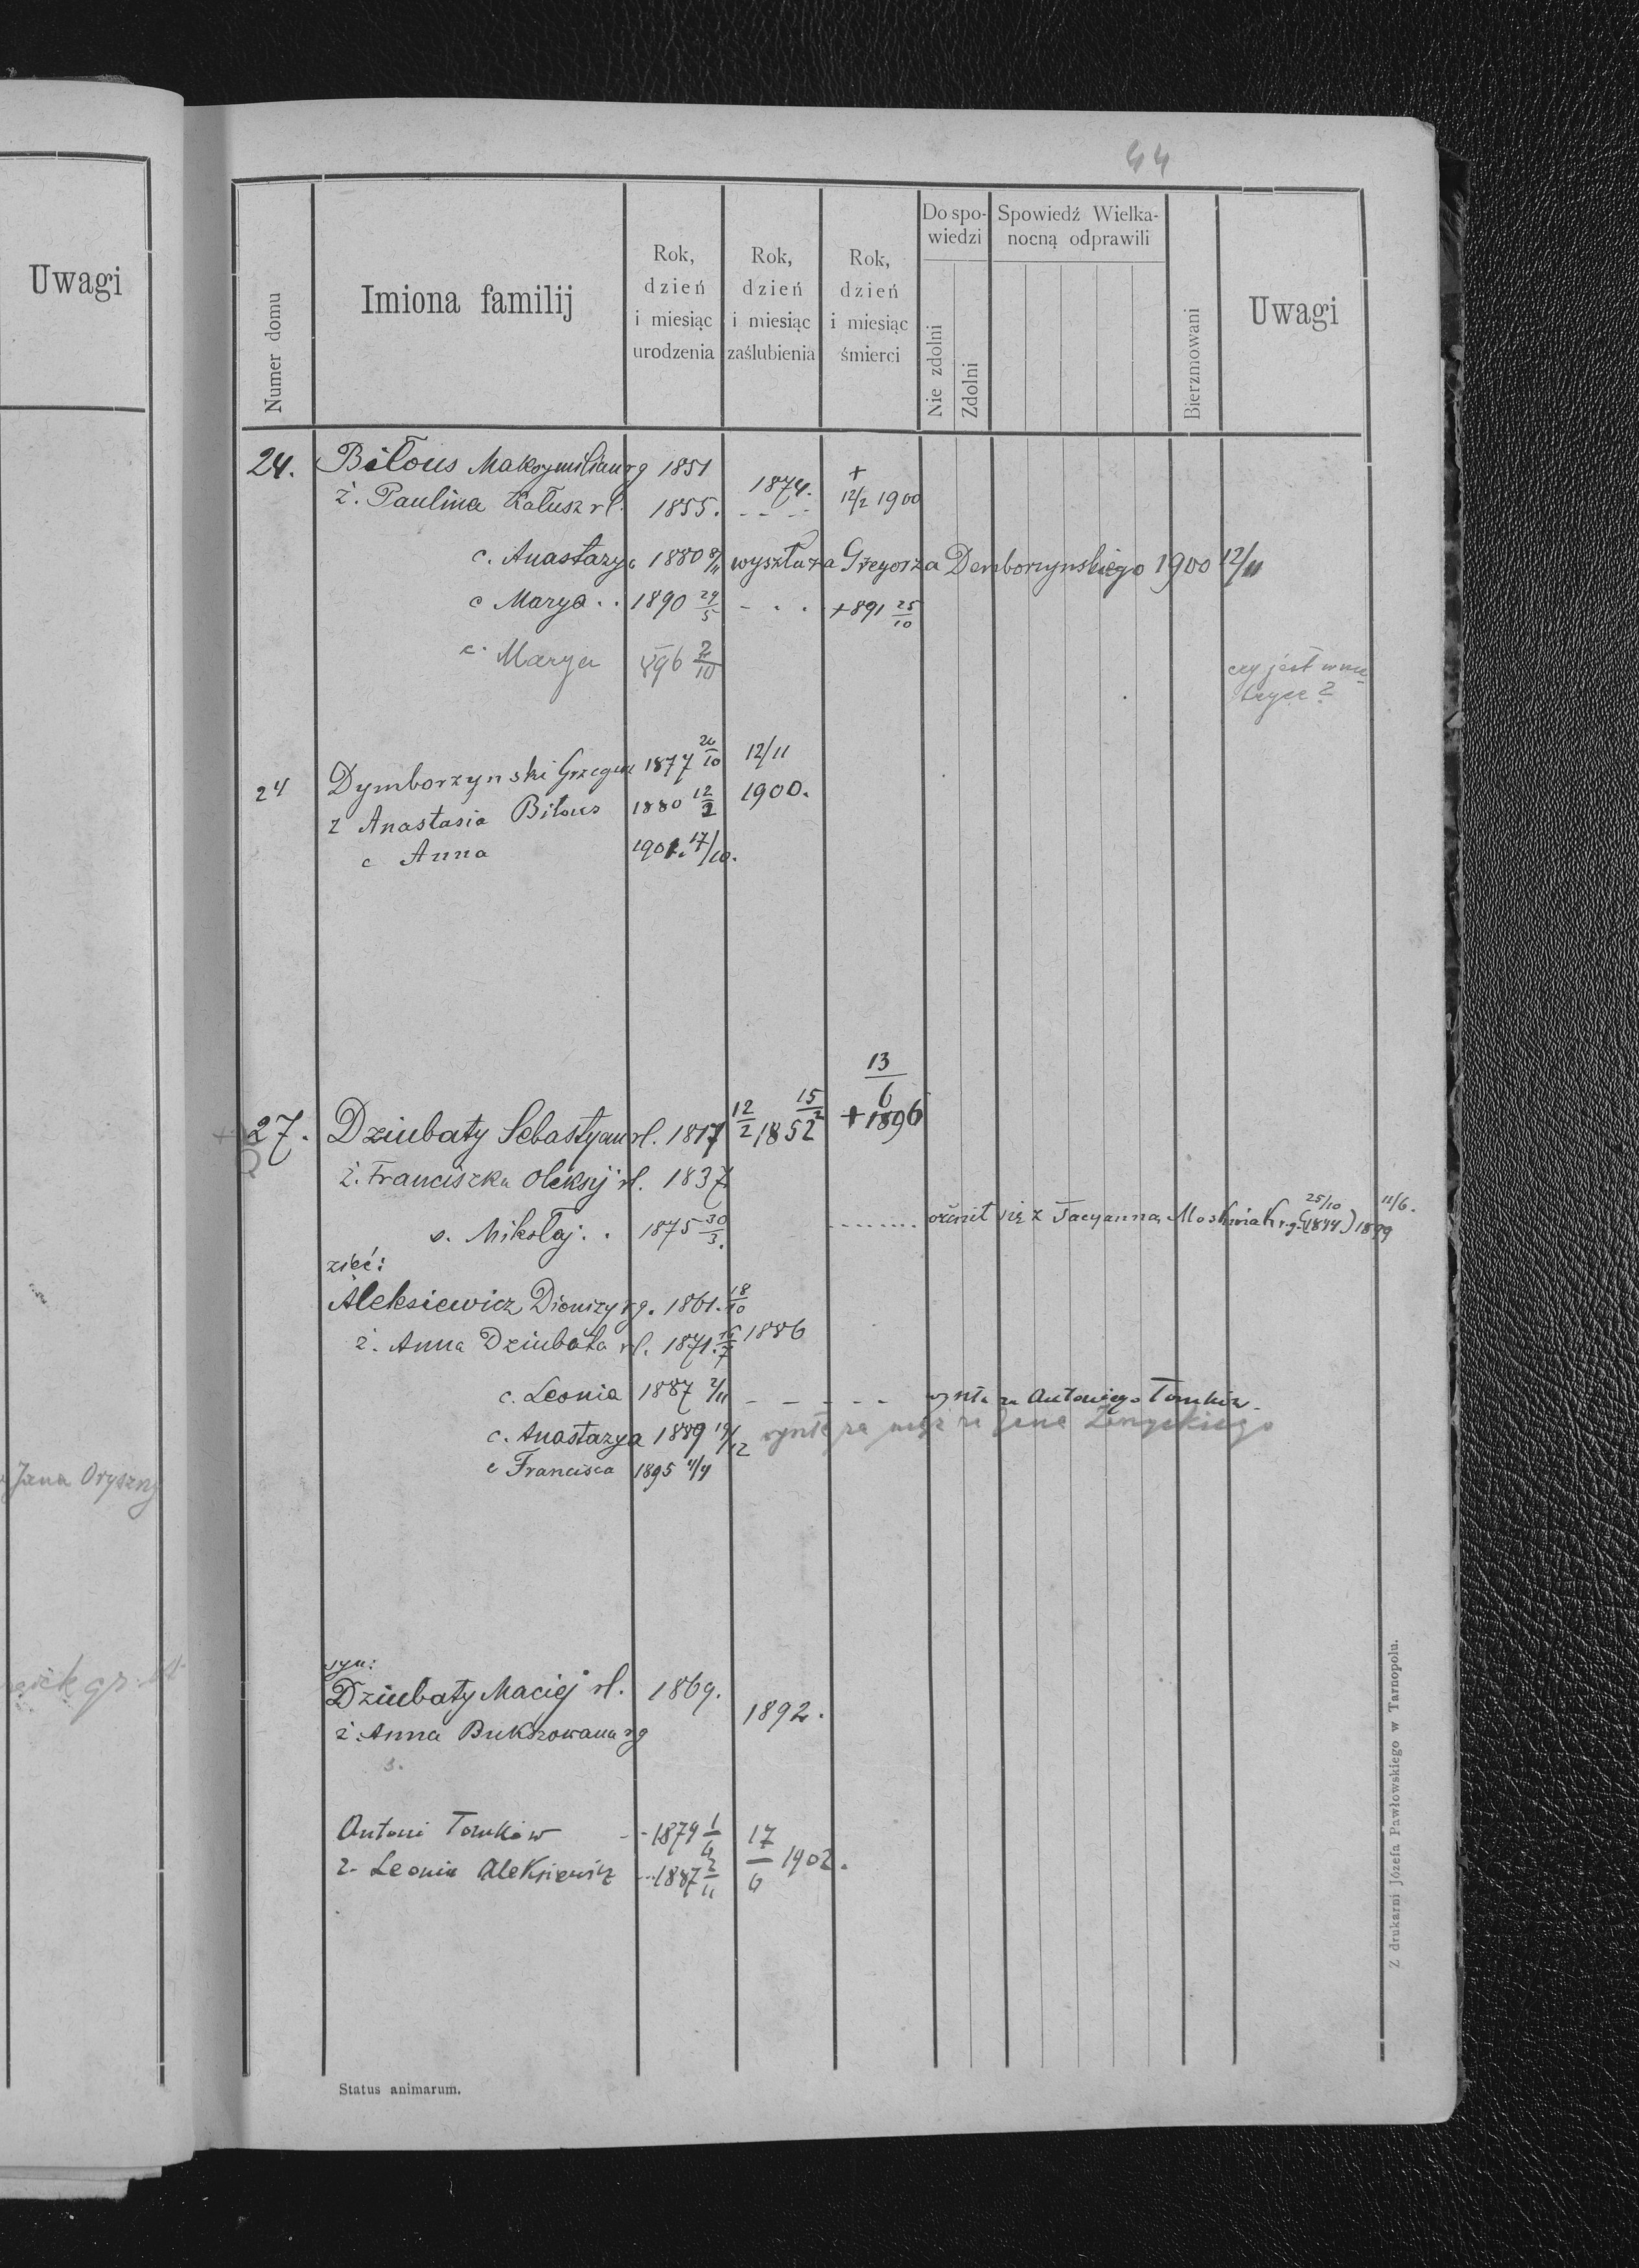 44
Uwagi
Numer domu
Imiona familij
Rok, dzień i miesiąc urodzenia
Rok, dzień i miesiąc zaślubienia
Rok, dzień i miesiąc śmierci
Do spo-wiedzi
Nie zdolni
Zdolni
Spowiedź Wielka-nocną odprawili
Bierzmowani
Uwagi
24. Biłous Maksymilian rg 1851
ż. Paulina Kałusz rl. 1855. 1874. + 12/2 1900
c. Anastazya 1880 9/11 wyszła za Grzegorza Demborzynskiego 1900 12/11
c Marya . . 1890 29/5 - . . +891 25/10
c. Marya 896 2/10 czy jest w me
tryce?
24 Dymborzynski Grzegorz 1877 20/10 12/11
ż Anastasia Biłous 1880 12/2 1900.
c Anna 1901. 17/10.
27. Dziubaty Sebastyan rl. 1817 12/2 1852 15/2 +1896 13/6
ż. Franciszka Oleksij rl. 1837
s. Mikołaj . . 1875 30/3. ........ ożenił się z Tacyanną Moskwiak rg. (25/10 1877) 1899 11/6.
zięć:
Aleksiewicz Dionizy rg. 1861. 18/10
ż. Anna Dziubata rl. 1871. 16/7 1886
c. Leonia 1887 2/11 - - - - - za Antoniego Tomków.
c. Anastazya 1889 19/12 za mąż za Jana
c Francisca 1895 4/4
Jana Oryszny
syn:
Dziubaty Maciej rl. 1869.
ż. Anna Bukszowana rg 1892.
s.
Antoni Tomków - - 1879 1/4 17/6 1902.
ż. Leonia Aleksiewicz ... 1887 2/11
Status animarum.
Z drukarni Józefa Pawłowskiego w Tarnopolu.